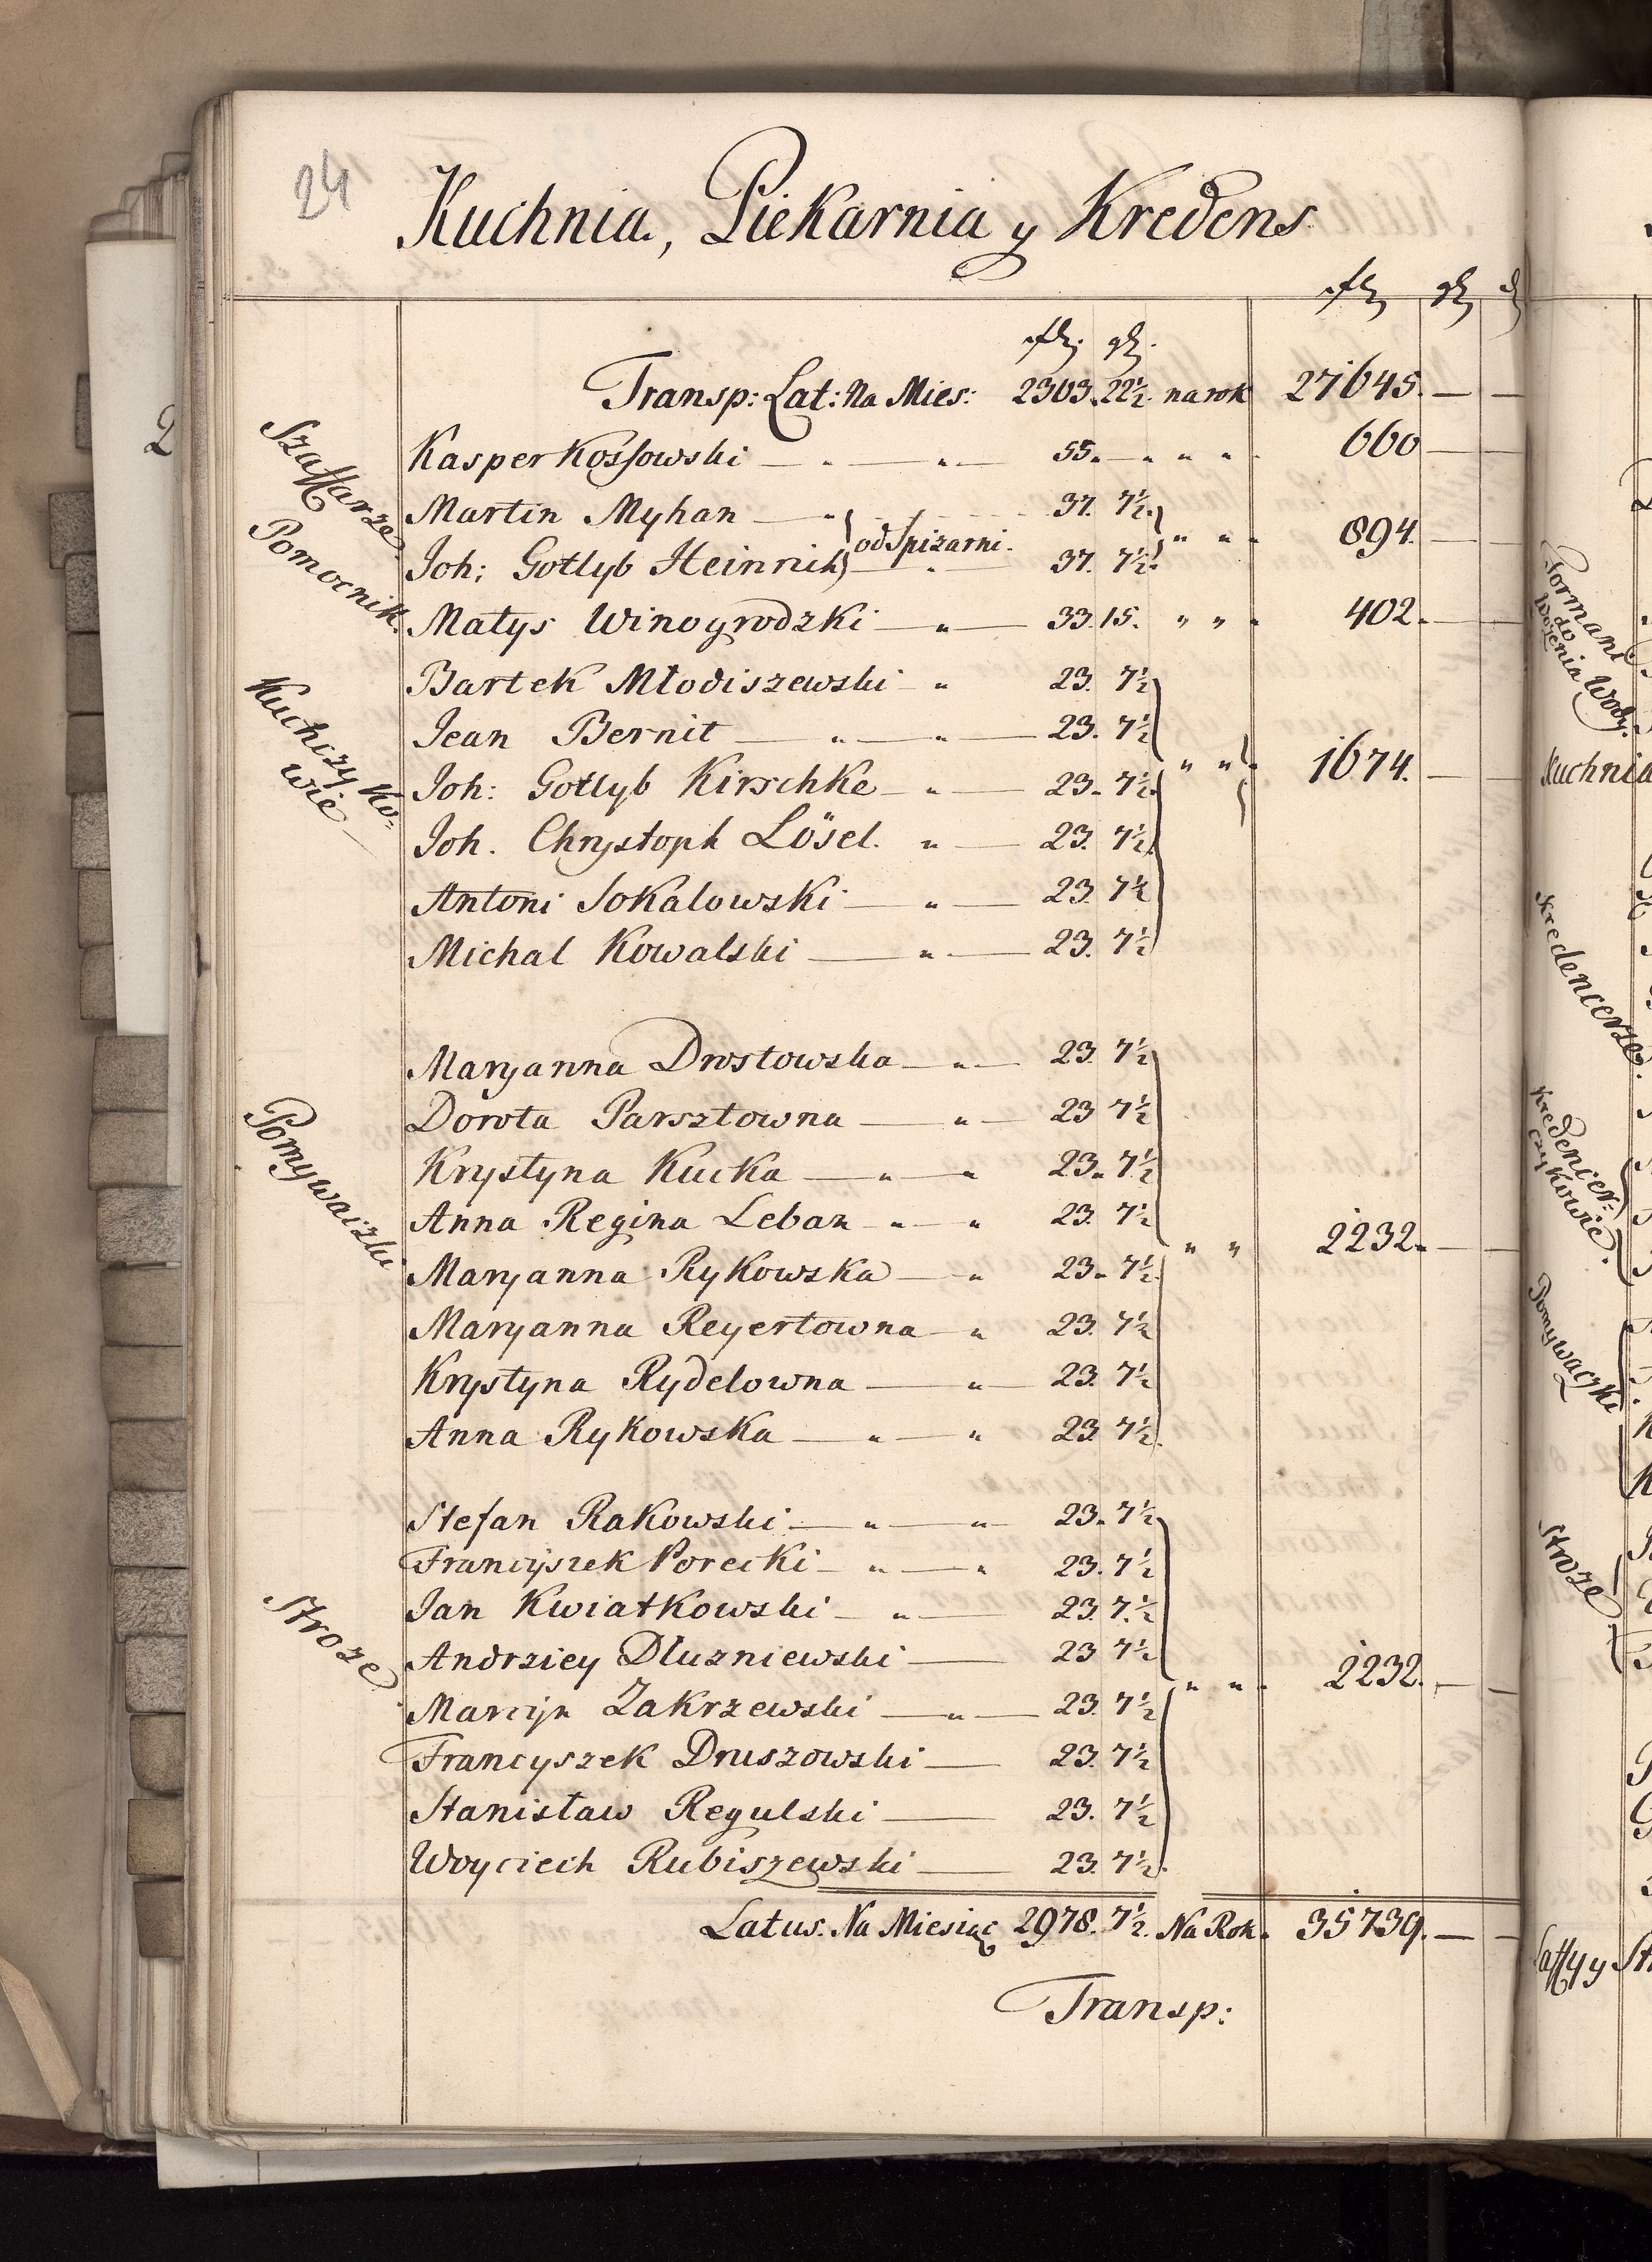 24
Kuchnia, Piekarnia y Kredens
fl gr d
fl. gr.
Transp: Lat: Na Mies: 2303. 22½. na rok 27645. — —
Szaffarze
Kasper Kossowski — " — " — 55. — " " " 660 — —
Martin Myhan — " 37. 7½.
od Spizarni. " " " 894. — —
Joh: Gotlyb Heinrich — " — 37. 7½.
Pomocnik.
Matys Winogrodzki — " — 33. 15. " " " 402. — —
Kuchczyko=
wie
Bartek Młodiszewski — " 23. 7½
Jean Bernit — " — " — 23. 7½
Joh: Gotlyb Kirschke — " — 23. 7½. " " " 1674. — —
Joh. Chrystoph Lösel. " — 23. 7½.
Antoni Sokalowski — " — 23. 7½
Michal Kowalski — " — 23. 7½
Pomywaczki
Maryanna Drostowska — " — 23. 7½
Dorota Parsztowna — " — 23 7½
Krystyna Kucka — " — " 23. 7½
Anna Regina Leban — " — " 23. 7½
" " 2232. — —
Maryanna Rykowska — " 23. 7½.
Maryanna Reyertowna — " 23. 7½
Krystyna Rydelowna — " — 23. 7½
Anna Rykowska — " — " 23 7½.
Stroze
Stefan Rakowski — " — " — 23. 7½
Franciyszek Porecki — " — " 23. 7½
Jan Kwiatkowski — " — 23. 7.½
Andrziey Dluzniewski — 23 7½
" " " 2232. — —
Marcyn Zakrzewski — " — 23. 7½
Francyszek Druszowski — 23. 7½
Stanisław Regulski — 23. 7½
Woyciech Rubiszewski — 23. 7½.
Latus. Na Miesiąc 2978. 7½. Na Rok. 35739. — —
Transp:
Formani
do
wożenia Wody.
Kuchnia
Kredencerze
Kredencer=
czykowie
Pomywaczki
Stroze